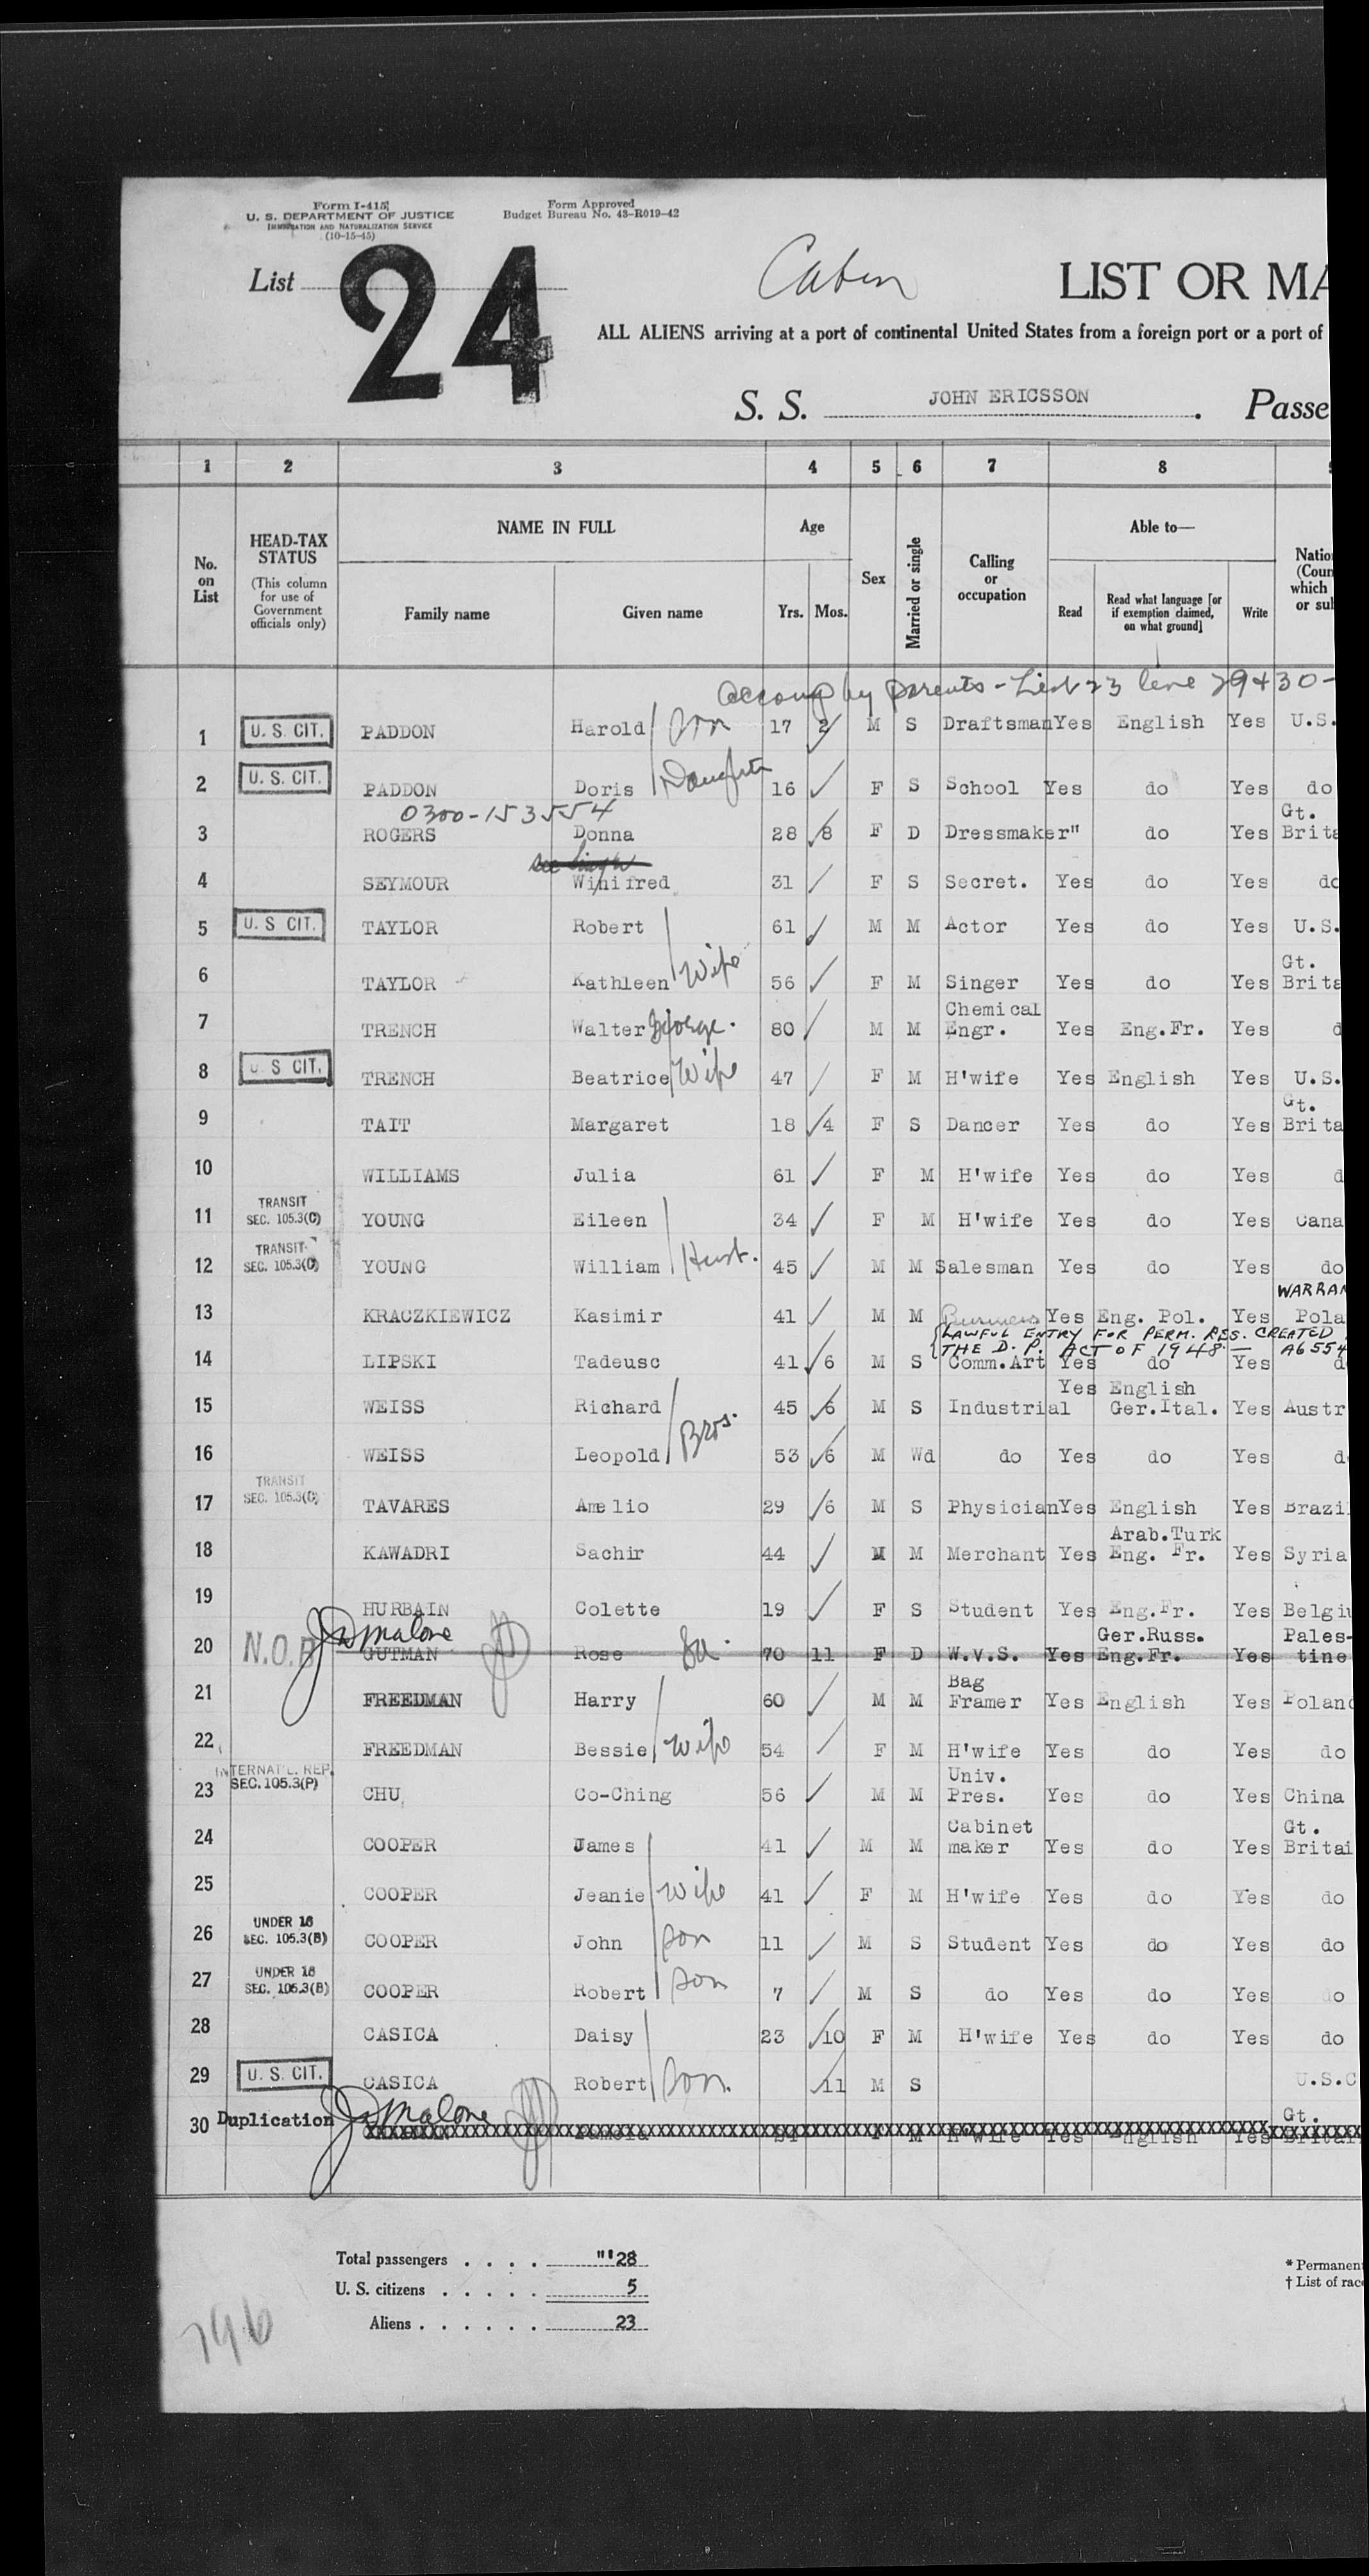 Form I-415
U. S. DEPARTMENT OF JUSTICE
IMMIGRATION AND NATURALIZATION SERVICE
(10-15-45)
Form Approved
Budget Bureau No. 43-R019-42
List 24
Cabin
LIST OR MA
ALL ALIENS arriving at a port of continental United States from a foreign port or a port of
S. S. JOHN ERICSSON. Passe
1 2 3 4 5 6 7 8
No. on List
HEAD-TAX STATUS
(This column for use of Government officials only)
NAME IN FULL
Family name Given name
Age
Yrs. Mos.
Sex
Married or single
Calling or occupation
Able to—
Read
Read what language [or if exemption claimed, on what ground]
Write
Natio
(Coun
which
or sul
accomp by parents - List 23 line 29 + 30 -
1 U. S. CIT. PADDON Harold son 17 2 M S Draftsman Yes English Yes U.S.
2 U. S. CIT. PADDON Doris Daughter 16 F S School Yes do Yes do
0300-153554
3 ROGERS Donna 28 8 F D Dressmaker " do Yes Gt. Brita
4 SEYMOUR Winifred 31 F S Secret. Yes do Yes do
5 U. S. CIT. TAYLOR Robert 61 M M Actor Yes do Yes U.S.
6 TAYLOR Kathleen Wife 56 F M Singer Yes do Yes Gt. Brita
7 TRENCH Walter George. 80 M M Chemical Engr. Yes Eng.Fr. Yes d
8 U. S. CIT. TRENCH Beatrice Wife 47 F M H'wife Yes English Yes U.S.
9 TAIT Margaret 18 4 F S Dancer Yes do Yes Gt. Brita
10 WILLIAMS Julia 61 F M H'wife Yes do Yes d
11 TRANSIT SEC. 105.3(C) YOUNG Eileen 34 F M H'wife Yes do Yes Cana
12 TRANSIT SEC. 105.3(C) YOUNG William Husb. 45 M M Salesman Yes do Yes do
WARRAN
13 KRACZKIEWICZ Kasimir 41 M M Business Yes Eng. Pol. Yes Pola
LAWFUL ENTRY FOR PERM. RES. CREATED
THE D. P. ACT OF 1948 - A6554
14 LIPSKI Tadeusc 41 6 M S Comm.Art Yes do Yes d
15 WEISS Richard 45 6 M S Industrial Yes English Ger.Ital. Yes Austr
Bros.
16 WEISS Leopold 53 6 M Wd do Yes do Yes d
17 TRANSIT SEC. 105.3(C) TAVARES Amelio 29 6 M S Physician Yes English Yes Brazi
18 KAWADRI Sachir 44 M M Merchant Yes Arab.Turk Eng. Fr. Yes Syria
19 HURBAIN Colette 19 F S Student Yes Eng.Fr. Yes Belgiu
J Malone
20 N.O.B. GUTMAN Rose 70 11 F D W.V.S. Yes Ger.Russ. Eng.Fr. Yes Pales-tine
21 FREEDMAN Harry 60 M M Bag Framer Yes English Yes Poland
22 FREEDMAN Bessie Wife 54 F M H'wife Yes do Yes do
23 INTERNAT'L. REP. SEC. 105.3(P) CHU, Co-Ching 56 M M Univ. Pres. Yes do Yes China
24 COOPER James 41 M M Cabinet maker Yes do Yes Gt. Britai
25 COOPER Jeanie Wife 41 F M H'wife Yes do Yes do
26 UNDER 18 SEC. 105.3(B) COOPER John son 11 M S Student Yes do Yes do
27 UNDER 18 SEC. 105.3(B) COOPER Robert son 7 M S do Yes do Yes do
28 CASICA Daisy 23 10 F M H'wife Yes do Yes do
29 U. S. CIT. CASICA Robert son. 11 M S U.S.C
30 Duplication J Malone F M H'wife Yes English Yes Gt. Britai
Total passengers . . . . "'28
U. S. citizens . . . . . 5
Aliens . . . . . . 23
796
* Permanen
† List of rac